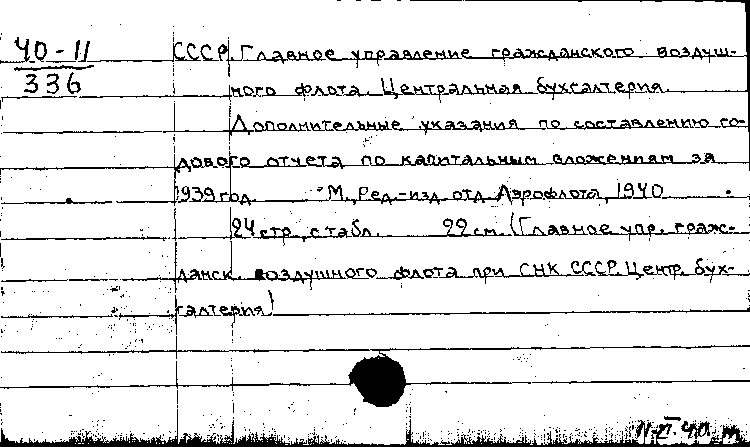 40-11
336
СССР. Главное управление гражданского воздуш-
ного флота. Центральная бухгалтерия.
Дополнительные указания по составлению го-
дового отчета по капитальным вложениям за
1939 год. М., Ред.-изд. отд. Аэрофлота, 1940
24 стр., с табл. 22 см. (Главное упр. граж-
данск. воздушного флота при СНК СССР. Центр. бух-
галтерия)